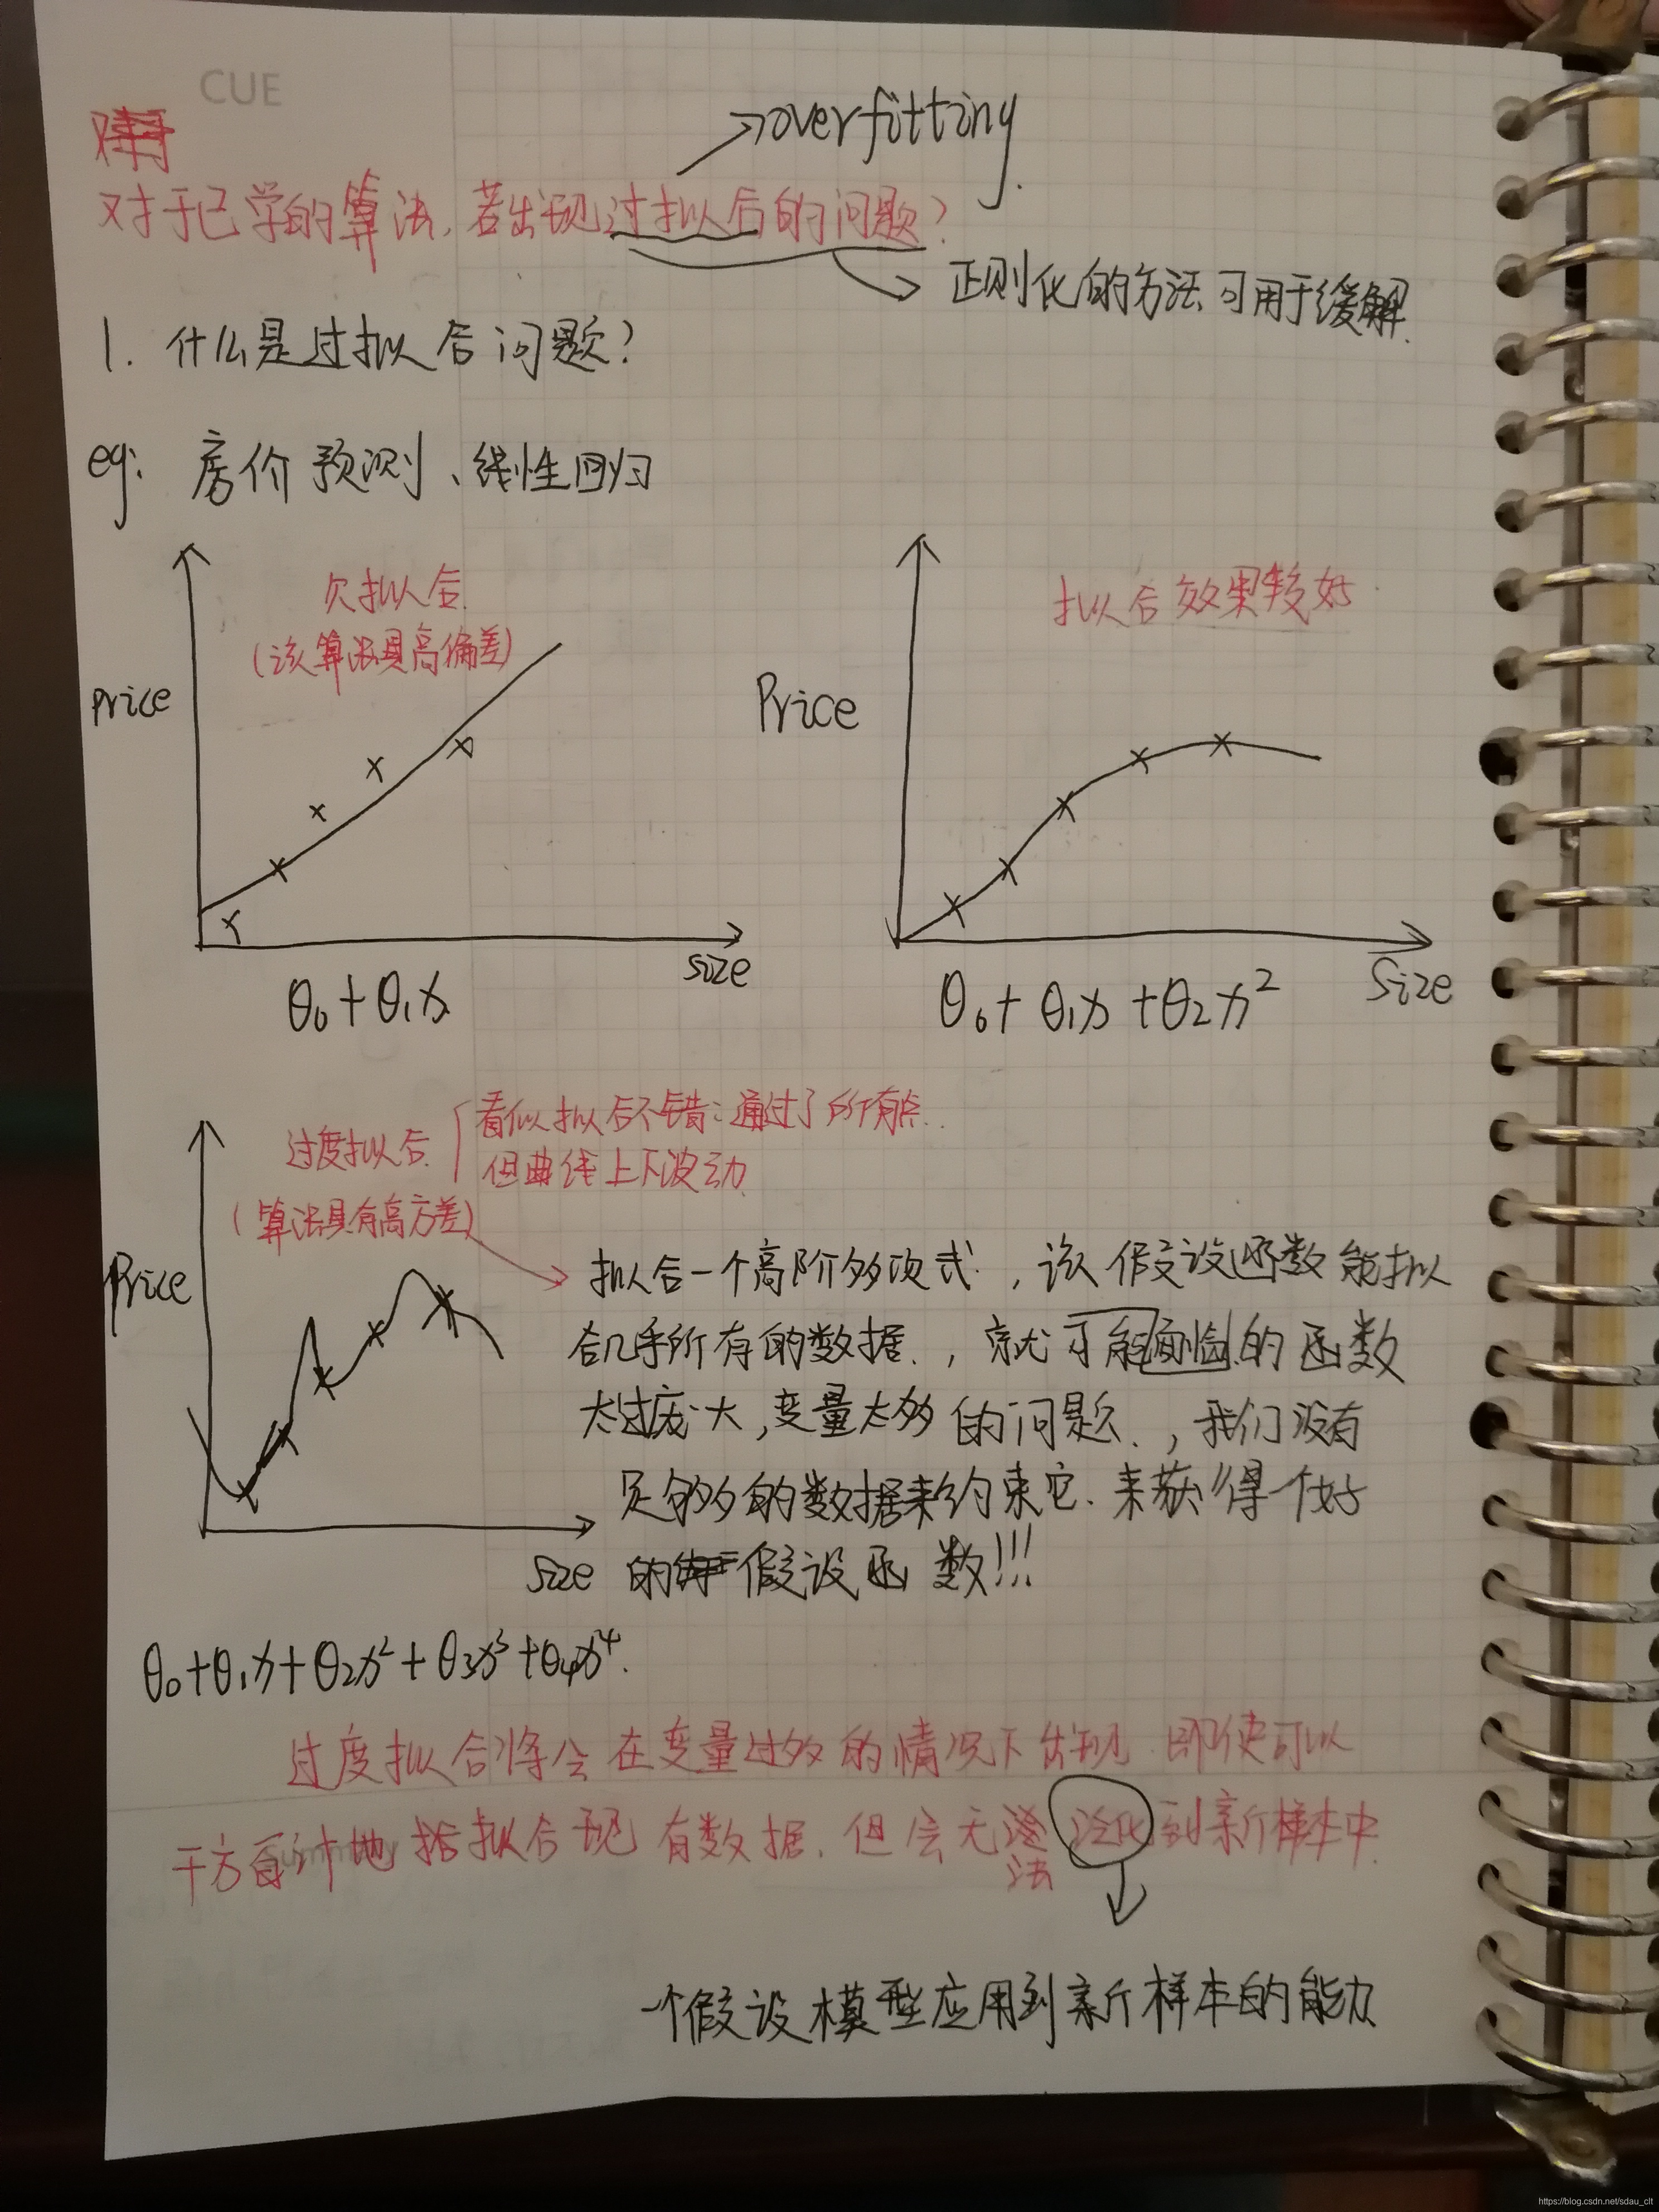 CUE
→overfitting
对于已学的算法,若出现过拟合的问题?
→ 正则化的方法可用于缓解.
1. 什么是过拟合问题?
eg: 房价预测、线性回归
欠拟合
(该算法具高偏差)
Price
size
θ₀+θ₁x
拟合效果较好
Price
Size
θ₀+θ₁x+θ₂x²
过度拟合
(算法具有高方差)
看似拟合不错:通过了所有点
但曲线上下波动
Price
Size
拟合一个高阶多项式,该假设函数能拟
合几乎所有的数据,就可能面临的函数
太过庞大,变量太多的问题,我们没有
足够多的数据来约束它.来获得一个好
的假设函数!!!
θ₀+θ₁x+θ₂x²+θ₃x³+θ₄x⁴.
过度拟合将会在变量过多的情况下出现.即使可以
千方百计地拟合现有数据.但会无法泛化到新样本中
Summary
一个假设模型应用到新样本的能力
https://blog.csdn.net/sdau_clt